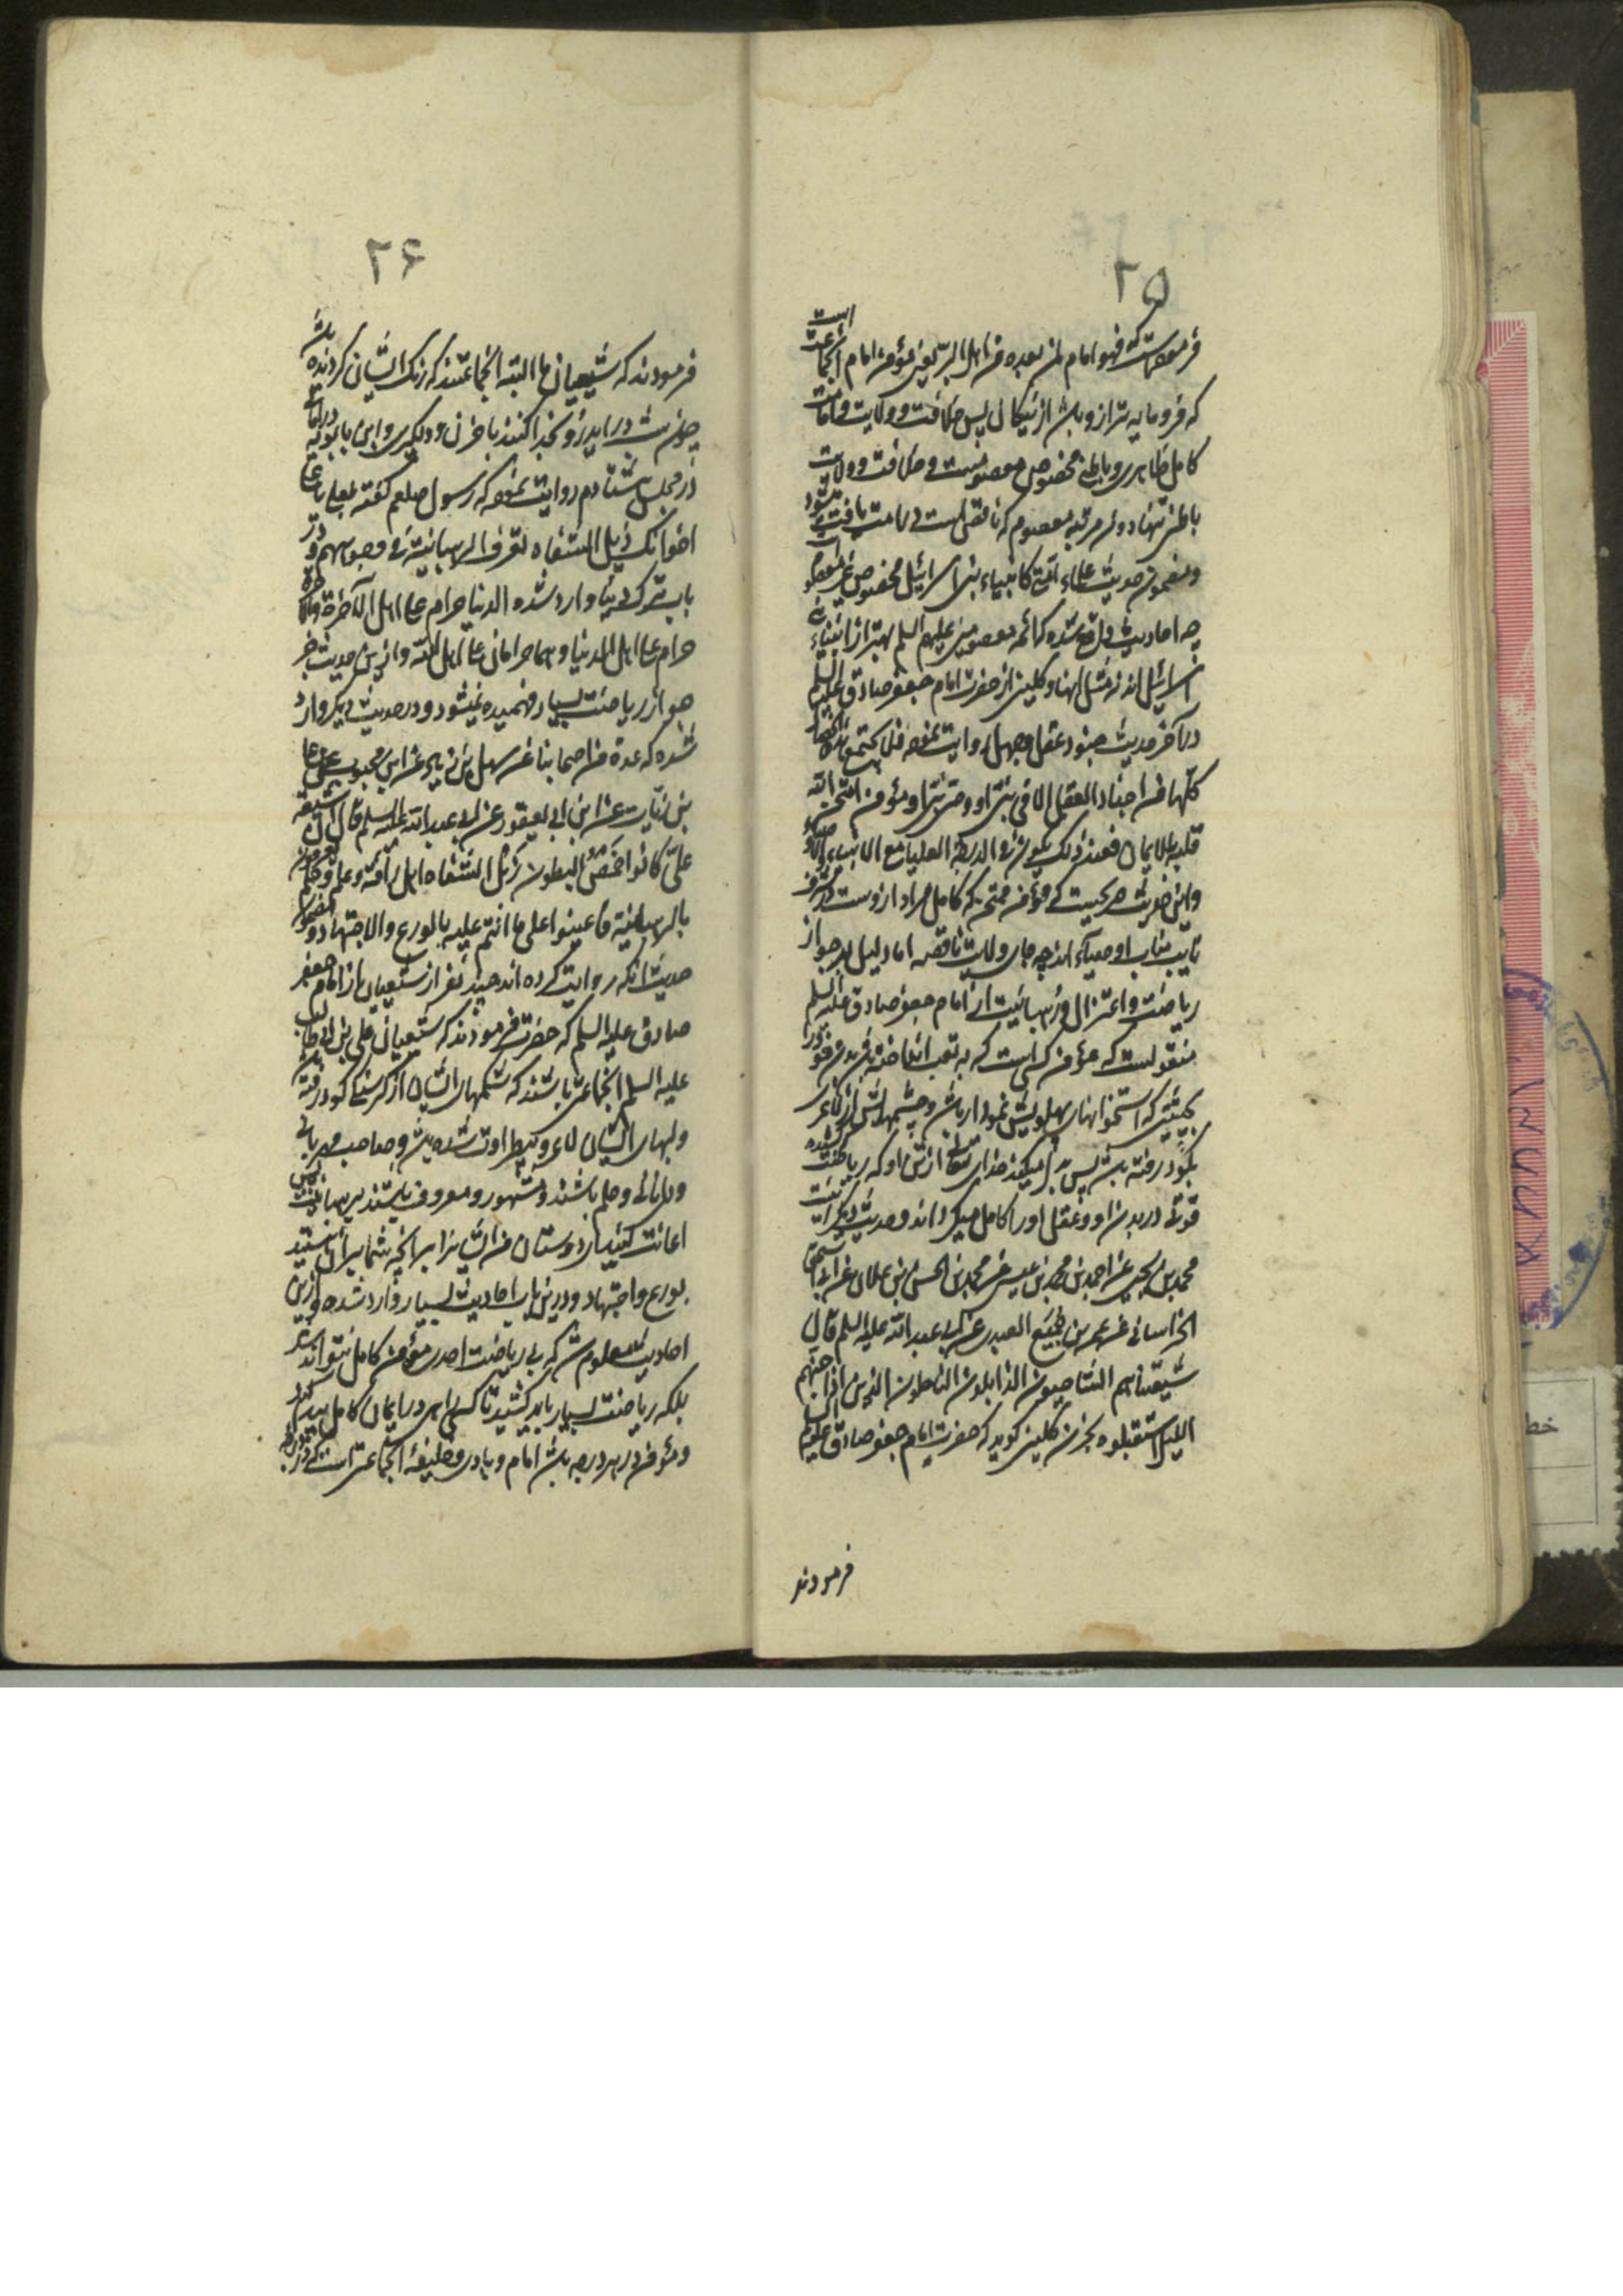 ۲۵
فرموده‌است که فهو امام لمن بعده من اهل البر یعنی مؤمن امام آنجماعت است
که فرومایه‌تر ازو باشد از نیکان پس خلافت و ولایت و امامت
کامل ظاهری و باطنی مخصوص معصومست و خلافت و ولایت
باطنی تنها دون مرتبه معصوم که ناقص است بی امامت یافت میشود
و مضمون حدیث علماء امتی کانبیاء بنی اسرائیل مخصوص غیر معصوم
چه احادیث واقع شده که ائمه معصومین علیهم السلم بهتر از انبیاء بنی
اسرائیل اند نه مثل آنها و کلینی از حضرت امام جعفر صادق علیه السلم
در آخر حدیث جنود عقل و جهل روایت نموده فلا یجتمع هذه الخصال
کلها من اجناد العقل الا فی نبی او وصی نبی او مؤمن امتحن الله
قلبه للایمان فعند ذلک یکون فی الدرجة العلیا مع الانبیاء و الاوصیاء
و این حدیث صریحست که مؤمن ممتحن که کامل مراد ازوست در
نایب مناب اوصیاء اند چه جای ولایت ناقصه اما دلیل بر جواز
ریاضت و اعتزال و رهبانیت از امام جعفر صادق علیه السلم
منقولست که مؤمن کسی است که به تعب انداخته باشد بدن خود را
بحیثیتی که استخوانهای پهلویش نمودار باشد و چشمهایش از لاغری
بگود رفته باشد پس بدل میکند خدای تعالی از برای او که ریاضت کشیده
قوتی در بدن او و عقل او را کامل میگرداند و حدیث دیگر اینست
محمد بن یحیی عن احمد بن محمد بن عیسی عن محمد بن الحسن بن علان عن ابی اسحق
الخراسانی عن عمرو بن جمیع العبدی عن ابی عبد الله علیه السلم قال
شیعتنا هم الشاحبون الذابلون الناحلون الذین اذا جنهم
اللیل استقبلوه بحزن کلینی گوید که حضرت امام جعفر صادق علیه السلم
فرمودند
۲۶
فرمودند که شیعیان ما البته آنجماعتند که رنگ ایشان گردیده باشد
چون شب درآید رو بخدا کنند با حزن و دلگیری و ابن بابویه در امالی
در مجلس هشتادم روایت نموده که رسول صلعم گفته بعلی یا علی
اخوانک ذبل الشفاه تعرف الرهبانیة فی وجوههم و در
باب ترک دنیا وارد شده الدنیا حرام علی اهل الآخرة و الآخرة
حرام علی اهل الدنیا و هما حرامان علی اهل الله و ازین حدیث جز
جواز ریاضت بسیار فهمیده نمیشود و در حدیث دیگر وارد
شده که عدة من اصحابنا عن سهل بن زیاد عن ابن محبوب عن علی
بن رئاب عن ابن ابی یعفور عن ابی عبد الله علیه السلم قال ان شیعة
علی کانوا خمص البطون ذبل الشفاه اهل رأفة و علم و حلم یعرفون
بالرهبانیة فاعینوا علی ما انتم علیه بالورع و الاجتهاد و مضمون
حدیث آنکه روایت کرده اند چند نفر از شیعیان از امام جعفر
صادق علیه السلم که حضرت فرمودند که شیعیان علی بن ابی طالب
علیه السلم آنجماعتی باشند که شکمهای ایشان از گرسنگی گود رفته باشد
و لبهای ایشان لاغر و بیطراوت شده باشد و صاحب مهربانی
و دانائی و حلم باشند و مشهور و معروف باشند برهبانیت پس
اعانت کنید ای دوستان من ایشانرا بر آنچه شما بر آن هستید
بورع و اجتهاد و درین باب احادیث بسیار وارد شده و ازین
احادیث معلوم شد که بی ریاضت احدی مؤمن کامل نتواند شد
بلکه ریاضت بسیار باید کشید تا کسی را در ایمان کامل بهم رسد
و مؤمن در هر درجه باشد امام و هادی و خلیفه آنجماعتی است که در درجه